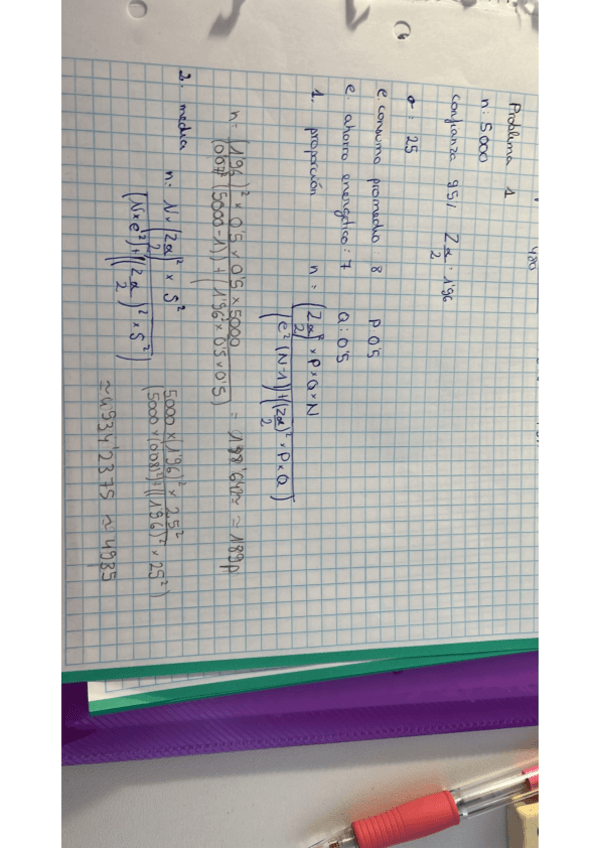 480
Problema 1
n: 5000
confianza 95% Zα/2: 1'96
σ = 25
e. consumo promedio: 8 P 0'5
e. ahorro energético: 7 Q: 0'5
1. proporción n = (Zα/2)² × P × Q × N
(e² (N-1)) + ((Zα/2)² × P × Q)
n = (1'96)² × 0'5 × 0'5 × 5000
(0'07² (5000-1)) + (1'96² × 0'5 × 0'5) =
2. media n: N × (Zα/2)² × S²
(N × e²) + ((Zα/2)² × S²)
5000 × (1'96)² × 25²
(5000 × (0'08)²) + ((1'96)² × 25²)